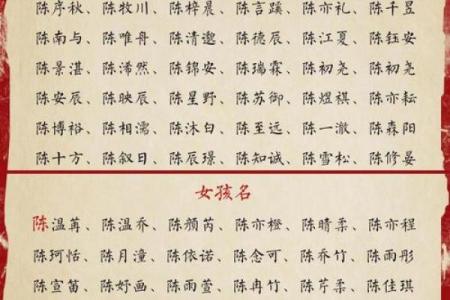 陈序秋、陈牧川、陈梓晨、陈言蹊、陈亦礼、陈千昱
陈南与、陈唯舟、陈清邈、陈德辰、陈江夏、陈钰安
陈景湛、陈浠然、陈锦安、陈瑞霖、陈初尧、陈初尧
陈安辰、陈映辰、陈星野、陈苏御、陈煜祺、陈亦耘
陈博裕、陈相濡、陈沐白、陈至远、陈一澈、陈森阳
陈十方、陈叙日、陈辰璟、陈知诚、陈雪松、陈修晏
女孩名
陈温苒、陈温乔、陈颜芮、陈亦橙、陈晴柔、陈亦程
陈珂恬、陈月潼、陈依诺、陈念可、陈乔竹、陈雨彤
陈宣苗、陈妤画、陈雨萱、陈冉竹、陈芹柔、陈佳琪